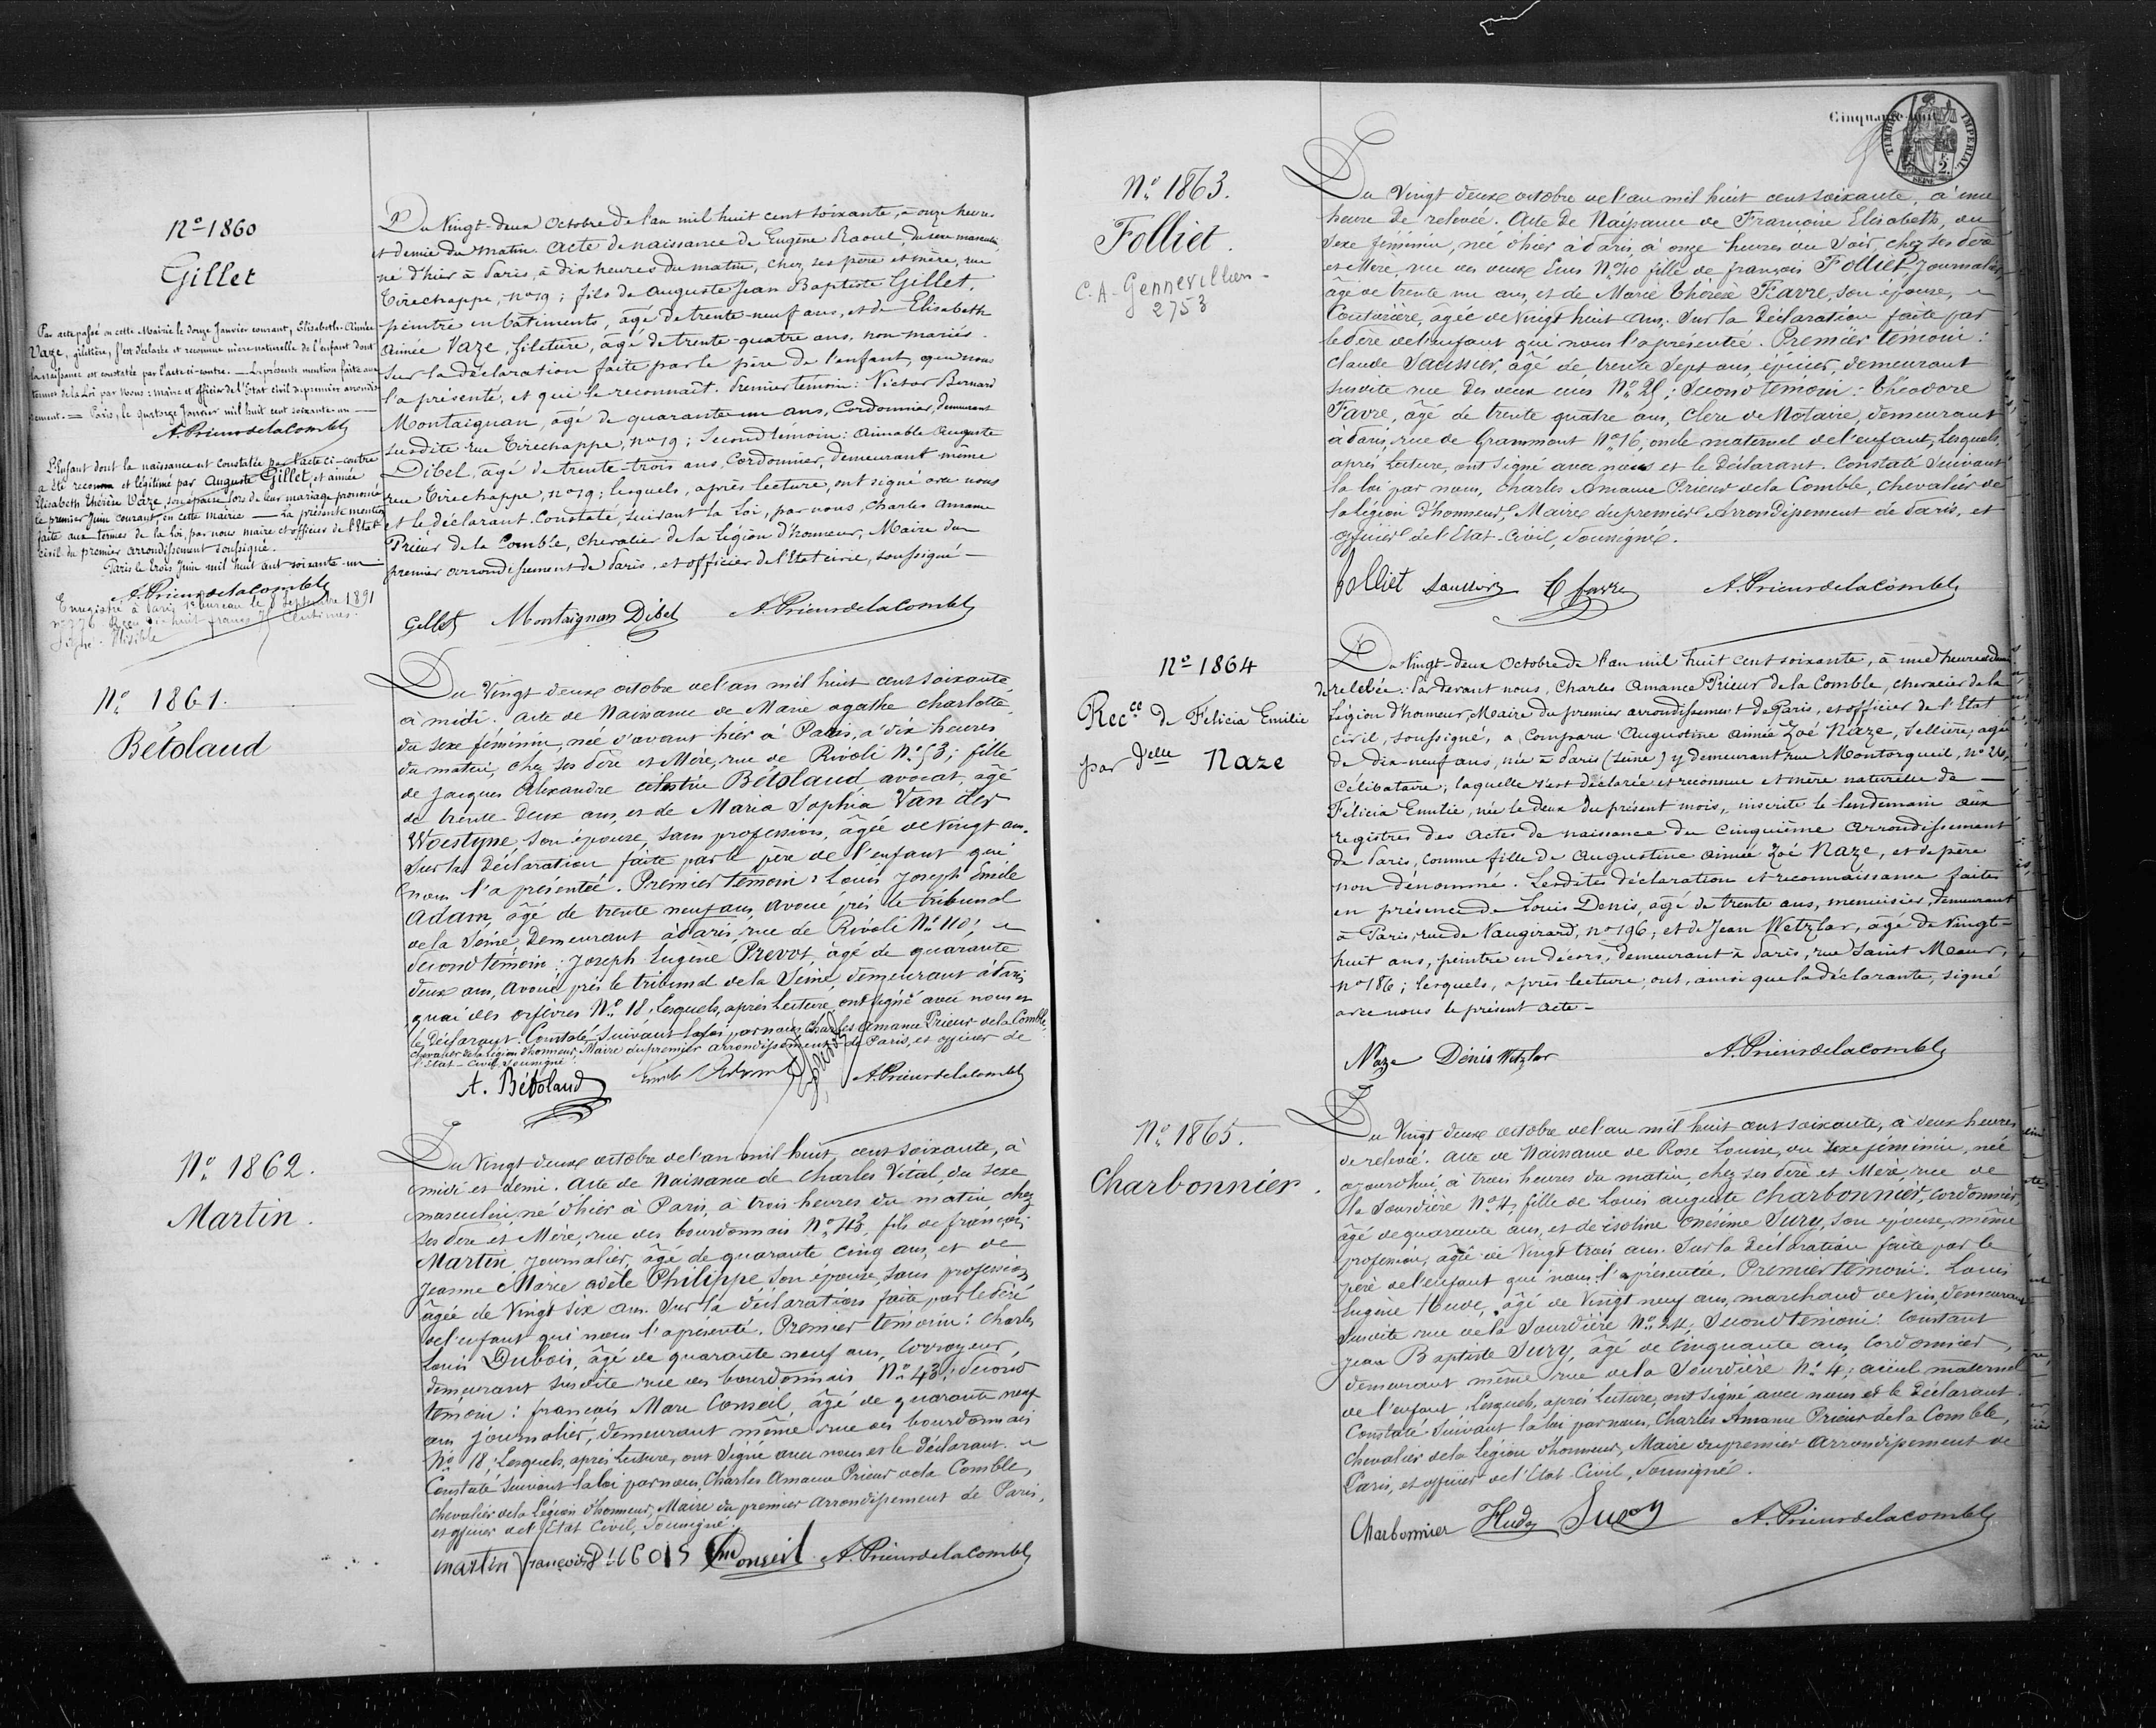 Nº 1860
Gillet
Par acte passé en cette Mairie le douze Janvier courant, Elisabeth-Aimée
Vaze, giletière, s'est déclarée et reconnue mère naturelle de l'enfant dont
la naissance est constatée par l'acte ci-contre. — La présente mention faite aux
termes de la Loi par Nous: maire et officier de l'Etat civil du premier arrondis
sement. = Paris, le quatorze Janvier mil huit cent soixante-un —
A. Prieur de la Comble
L'Enfant dont la naissance est constatée par l'acte ci-contre
a été reconnu et légitimé par Auguste Gillet, et aimée
Elisabeth Thérèse Vaze, son épouse lors de leur mariage prononcé
le premier Juin courant, en cette mairie — La présente mention
faite aux termes de la Loi, par nous maire et officier de l'Etat
civil du premier arrondissement soussigné.
Paris le trois Juin mil huit cent soixante-un
A. Prieur de la Comble
Enregistré à Paris, 1er bureau le 8 Septembre 1891
huit francs centimes.
Signé: Illisible
Du Vingt-deux Octobre de l'an mil huit cent soixante, à onze heures
et demie du matin. Acte de naissance de Eugène Raoul, du sexe masculin,
né d'hier à Paris, à dix heures du matin, chez ses père et mère, rue
Tirechappe, nº 19; fils de Auguste Jean Baptiste Gillet,
peintre en bâtiments, âgé de trente-neuf ans, et de Elisabeth
Aimée Vaze, giletière, âgé de trente-quatre ans, non mariés.
Sur la déclaration faite par le père de l'enfant, que nous
l'a présenté, et qui le reconnaît. Premier témoin: Victor Bernard
Montaignan, âgé de quarante un ans, Cordonnier, demeurant
susdite rue Tirechappe, nº 19; Second témoin: Aimable Auguste
Dibel, âgé de trente-trois ans, Cordonnier, demeurant même
rue Tirechappe, nº 19; lesquels, après lecture, ont signé avec nous
et le déclarant. Constaté, suivant la Loi, par nous, Charles Amance
Prieur de la Comble, Chevalier de la Légion d'honneur, Maire du
premier arrondissement de Paris, et officier de l'Etat civil, soussigné —
Gillet Montaignan Dibel A. Prieur de la Comble
Nº 1861.
Bétolaud
Du Vingt deux octobre de l'an mil huit cent soixante
à midi. Acte de Naissance de Marie agathe charlotte,
du sexe féminin, née d'avant hier à Paris, à dix heures
du matin, chez ses Père et Mère, rue de Rivoli Nº 53; fille
de Jacques Alexandre célestin Bétolaud avocat, âgé
de trente deux ans, et de Maria Sophia Van der
Woestyne, son épouse, sans profession, âgée de vingt ans.
Sur la Déclaration faite par le père de l'enfant qui
nous l'a présentée. Premier témoin: Louis Joseph Emile
Adam, âgé de trente neuf ans, avoué près le tribunal
de la Seine, demeurant à Paris, rue de Rivoli Nº 110;
Second témoin: Joseph Eugène Prevot, âgé de quarante
deux ans, avoué près le tribunal de la Seine, demeurant à Paris
quai des orfèvres Nº 18, Lesquels, après Lecture, ont signé avec nous et
le Déclarant. Constaté Suivant la loi, par nous, Charles Amance Prieur de la Comble,
chevalier de la Légion d'honneur, Maire du premier arrondissement de Paris, et officier de
l'Etat-civil, soussigné
A. Bétolaud Emile Adam E. Prevot A. Prieur de la Comble
Nº 1862.
Martin.
Du Vingt deux octobre de l'an mil huit cent soixante, à
midi et demi. Acte de Naissance de Charles Vital, du sexe
masculin, né d'hier à Paris, à trois heures du matin, chez
ses Père et Mère, rue des bourdonnais Nº 43, fils de françois
Martin, Journalier, âgé de quarante cinq ans, et de
Jeanne Marie adèle Philippe, son épouse, sans profession,
âgée de Vingt six ans. Sur la déclaration faite par le Père
de l'enfant qui nous l'a présenté. Premier témoin: Charles
Louis Dubois, âgé de quarante neuf ans, Corroyeur,
demeurant susdite rue des bourdonnais Nº 43; Second
témoin: françois Marc Conseil, âgé de quarante neuf
ans, journalier, demeurant même rue des bourdonnais
Nº 18; Lesquels, après Lecture, ont Signé avec nous et le Déclarant.
Constaté Suivant la loi par nous, Charles Amance Prieur de la Comble,
chevalier de la Légion d'honneur, Maire du premier arrondissement de Paris,
et officier de l'Etat Civil, Soussigné.
martin françois Dubois Conseil A. Prieur de la Comble
Cinquante-huit
TIMBRE IMPERIAL
SEINE
Nº 1863.
Folliet.
C.A. Gennevilliers -
2753
Du Vingt deux octobre de l'an mil huit cent soixante, à une
heure de relevée. Acte de Naissance de Françoise Elisabeth, du
Sexe féminin, née d'hier à Paris, à onze heures du Soir, chez ses Père
et Mère, rue des deux Ecus Nº 40 fille de françois Folliet, Journalier,
âgé de trente un ans, et de Marie Thérèse Favre, son épouse,
Couturière, âgée de Vingt huit ans. Sur la Déclaration faite par
le Père de l'enfant qui nous l'a présentée. Premier témoin:
Claude Saussier, âgé de trente Sept ans, épicier, demeurant
Susdite rue Des deux ecus Nº 25; Second témoin: Théodore
Favre, âgé de trente quatre ans, Clerc de Notaire, demeurant
à Paris, rue de Grammont Nº 16, oncle maternel de l'enfant, Lesquels,
après Lecture, ont signé avec nous et le Déclarant. Constaté Suivant
la loi par nous, Charles Amance Prieur de la Comble, Chevalier de
la Légion d'honneur, Maire du premier Arrondissement de Paris, et
officier de l'Etat-Civil, Soussigné.
folliet T favre A. Prieur de la Comble
Nº 1864
Rec.ce de Félicia Emilie
par Delle Naze
Du Vingt-deux Octobre de l'an mil huit cent soixante, à une heure et demie
de relevée: Par devant nous, Charles Amance Prieur de la Comble, chevalier de la
Légion d'honneur, Maire du premier arrondissement de Paris, et officier de l'Etat
civil, soussigné, a Comparu Augustine aimée Zoé Naze, Sellière, âgée
de dix-neuf ans, née à Paris (Seine) y demeurant rue Montorgueil, nº 26,
Célibataire; laquelle s'est déclarée et reconnue être mère naturelle de —
Félicia Emilie, née le deux du présent mois, inscrite le lendemain aux
registres des actes de naissance du cinquième arrondissement
de Paris, comme fille de Augustine aimée Zoé Naze, et de père
non dénommé. Lesdites déclaration et reconnaissance faites
en présence de Louis Denis, âgé de trente ans, menuisier, demeurant
à Paris, rue de Vaugirard, nº 196; et de Jean Wetzlar, âgé de Vingt-
huit ans, peintre en décors, demeurant à Paris, rue Saint Maur,
nº 186; lesquels, après lecture, ont, ainsi que la déclarante, signé
avec nous le présent acte -
Naze Dénis Wetzlar A. Prieur de la Comble
Nº 1865.
Charbonnier.
Du Vingt deux octobre de l'an mil huit cent soixante, à deux heures
de relevée. Acte de Naissance de Rose Louise, du sexe féminin, née
aujourd'hui, à trois heures du matin, chez ses Père et Mère, rue de
la Sourdière Nº 4, fille de Louis auguste charbonnier, cordonnier,
âgé de quarante ans, et de Isoline onésime Sury, son épouse, même
profession, âgée de Vingt trois ans. Sur la Déclaration faite par le
père de l'enfant qui nous l'a présentée. Premier témoin: Louis
Eugène Hude, âgé de Vingt neuf ans, marchand de vin, demeurant
Susdite rue de la Sourdière Nº 24, Second témoin: Constant
Jean Baptiste Sury, âgé de Cinquante ans, Cordonnier,
demeurant même rue de la Sourdière Nº 4; aïeul maternel
de l'enfant, Lesquels, après Lecture, ont Signé avec nous et le Déclarant.
Constaté Suivant la loi par nous, Charles Amance Prieur de la Comble,
Chevalier de la Légion d'honneur, Maire du premier Arrondissement de
Paris, et officier de l'Etat Civil, Soussigné.
Charbonnier Hude Sury A. Prieur de la Comble